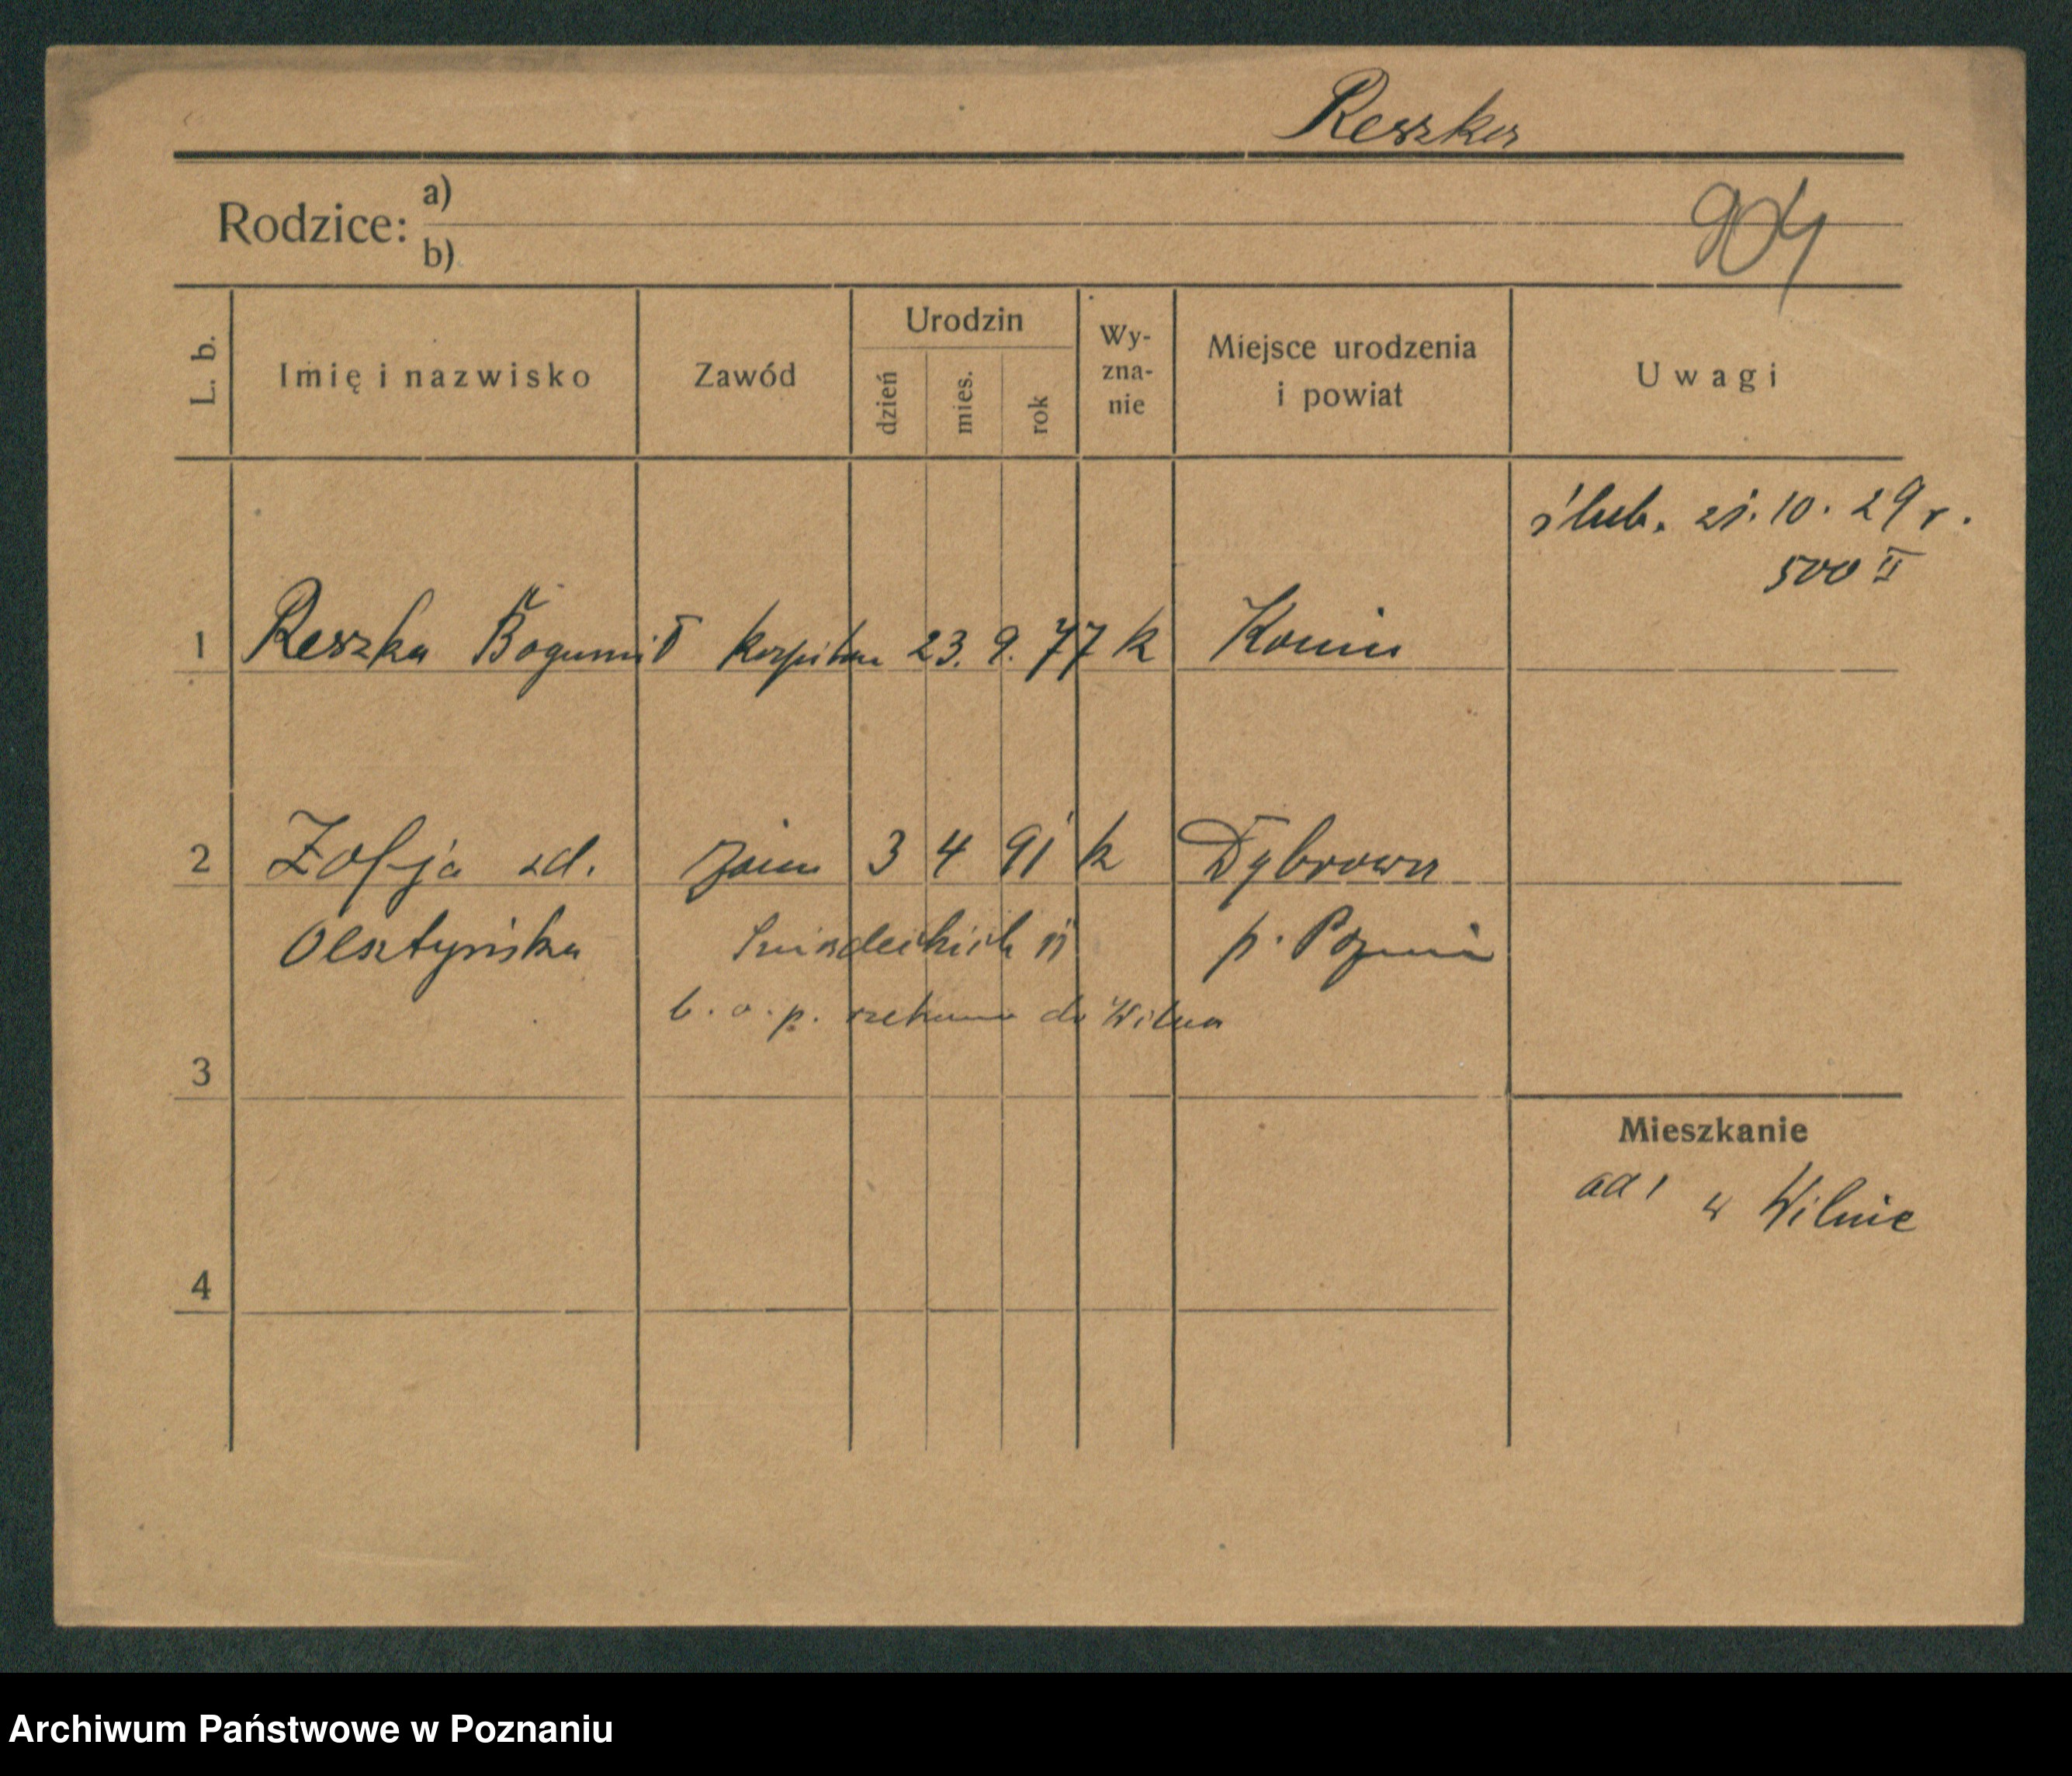 Reszka
Rodzice: a)
b)
904
L. b.
Imię i nazwisko
Zawód
Urodzin
dzień mies. rok
Wy-
zna-
nie
Miejsce urodzenia
i powiat
Uwagi
ślub. 21.10.29 r.
500 II
1 Reszka Bogumił kapitan 23. 9. 77 k Konin
2 Zofja zd. 3 4 91 k Dąbrowa
Olsztyńska Śniadeckich 11 p. Poznań
b. o. p. rzekomo do Wilna
3
Mieszkanie
ad 1 w Wilnie
4
Archiwum Państwowe w Poznaniu